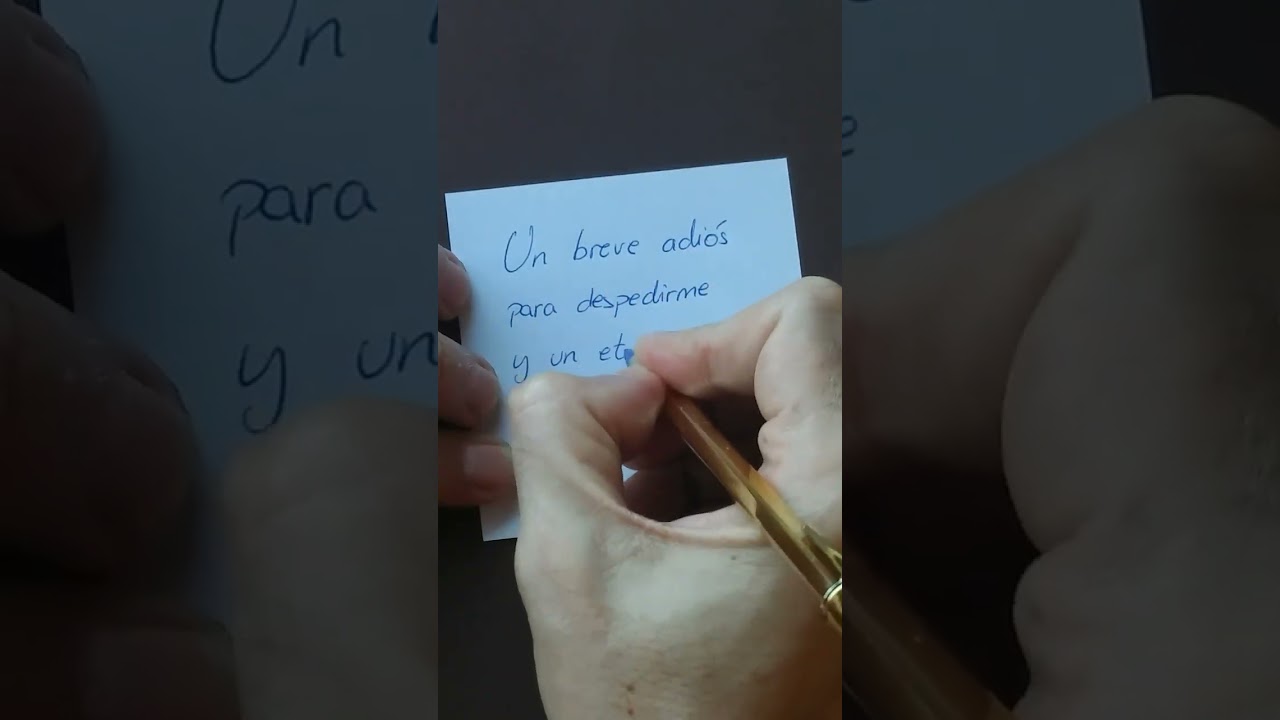 Un breve adiós
para despedirme
y un et